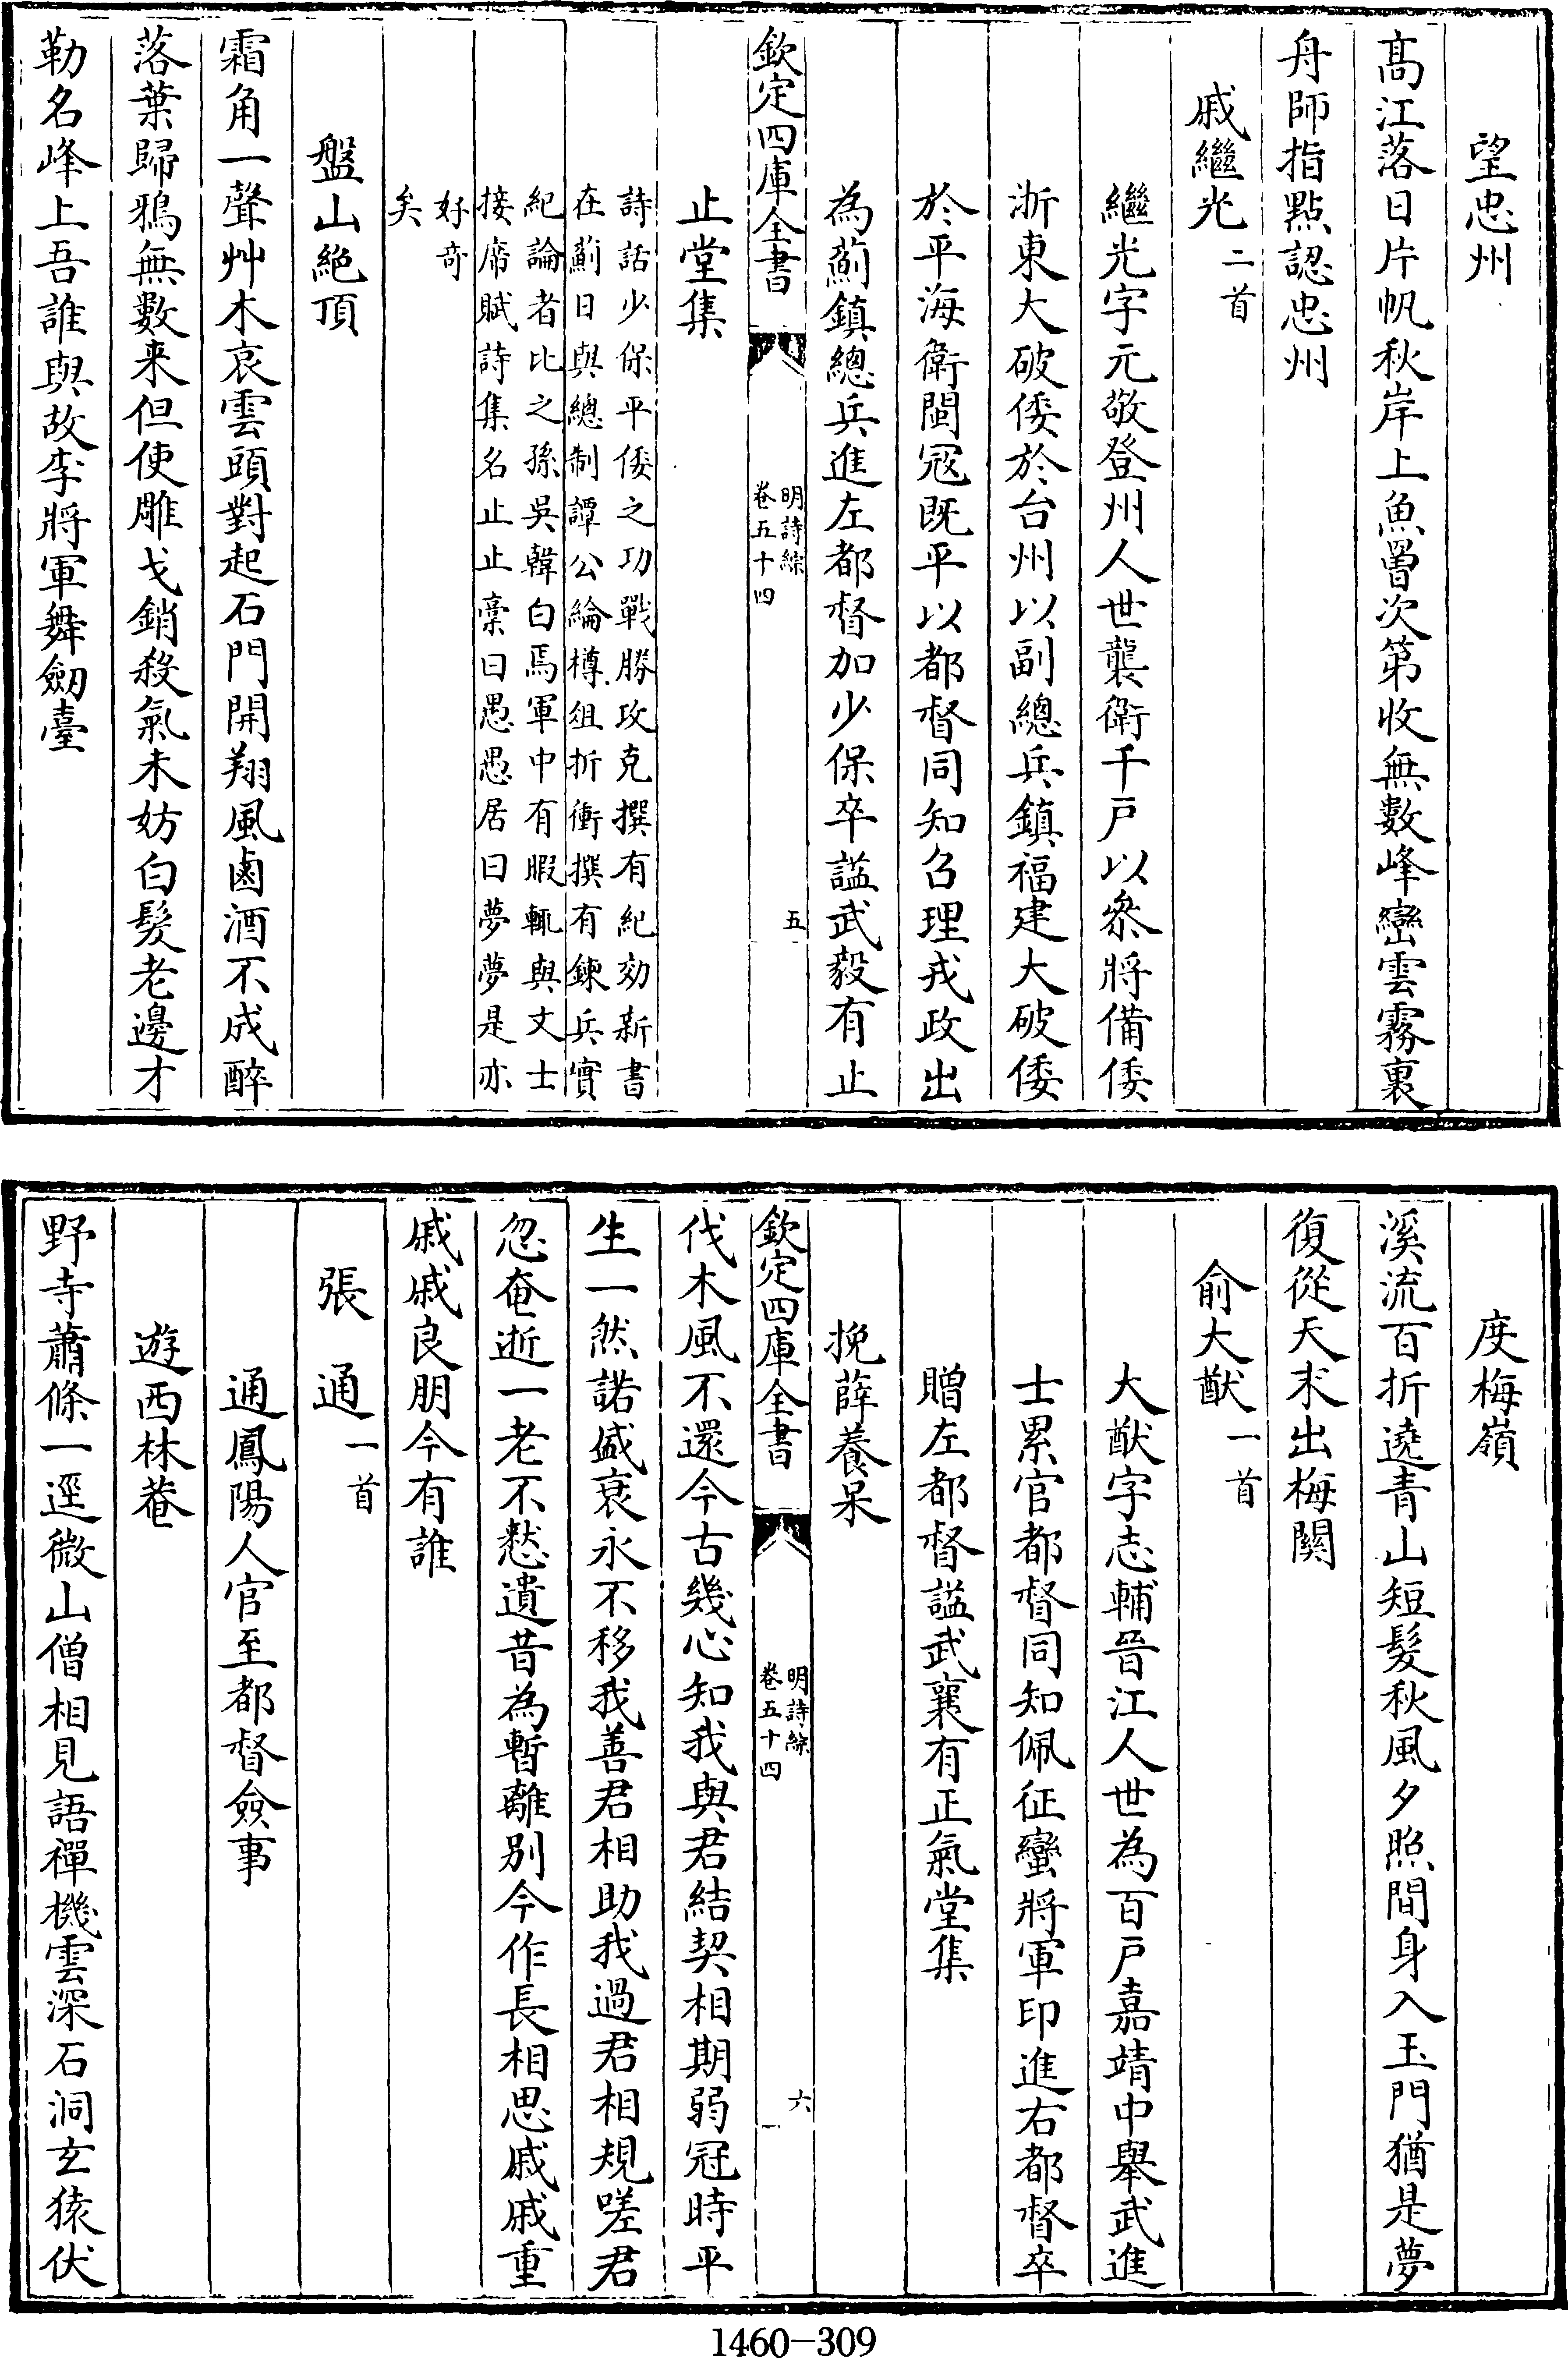 望忠州
髙江落日片帆秋岸上魚罾次第收無數峰巒雲霧裏
舟師指點認忠州
戚繼光二首
繼光字元敬登州人世襲衛千戶以參將備倭
浙東大破倭於台州以副總兵鎮福建大破倭
於平海衛閩冦既平以都督同知召理戎政出
為薊鎮總兵進左都督加少保卒諡武毅有止
欽定四庫全書
明詩綜
卷五十四
五
止堂集
詩話少保平倭之功戰勝攻克撰有紀効新書
在薊日與總制譚公綸樽俎折衝撰有鍊兵實
紀論者比之孫吳韓白焉軍中有暇輒與文士
接席賦詩集名止止稾曰愚愚居曰夢夢是亦
好奇
矣
盤山絶頂
霜角一聲艸木哀雲頭對起石門開翔風鹵酒不成醉
落葉歸鴉無數来但使雕戈銷殺氣未妨白髮老邊才
勒名峰上吾誰與故李將軍舞劒臺
度梅嶺
溪流百折遶青山短髮秋風夕照間身入玉門猶是夢
復從天末出梅關
俞大猷一首
大猷字志輔晉江人世為百戶嘉靖中舉武進
士累官都督同知佩征蠻將軍印進右都督卒
贈左都督諡武襄有正氣堂集
挽薛養呆
欽定四庫全書
明詩綜
卷五十四
六
伐木風不還今古幾心知我與君結契相期弱冠時平
生一然諾盛衰永不移我善君相助我過君相規嗟君
忽奄逝一老不憖遺昔為暫離別今作長相思戚戚重
戚戚良朋今有誰
張通一首
通鳳陽人官至都督僉事
遊西林菴
野寺蕭條一逕微山僧相見語禪機雲深石洞玄猿伏
1460-309